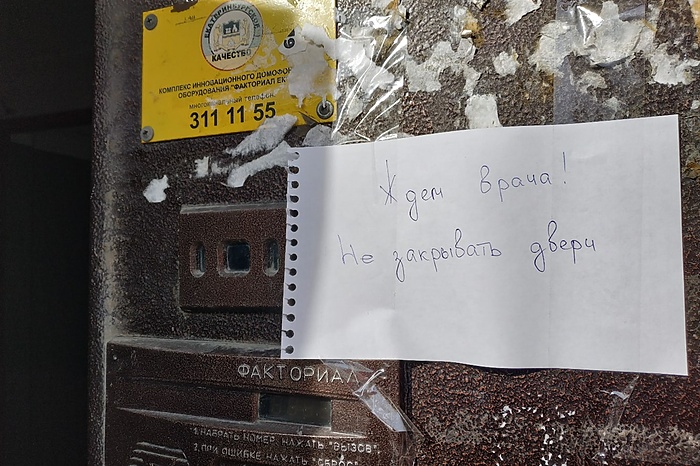 ЕКАТЕРИНБУРГСКОЕ
КАЧЕСТВО
КОМПЛЕКС ИННОВАЦИОННОГО
ОБОРУДОВАНИЯ "ФАКТОРИАЛ
многоканальный телефон
311 11 55
Ждем врача!
Не закрывать двери
ФАКТОРИАЛ
1. НАБРАТЬ НОМЕР, НАЖАТЬ "ВЫЗОВ",
2. ПРИ ОШИБКЕ НАЖАТЬ "СБРОС"